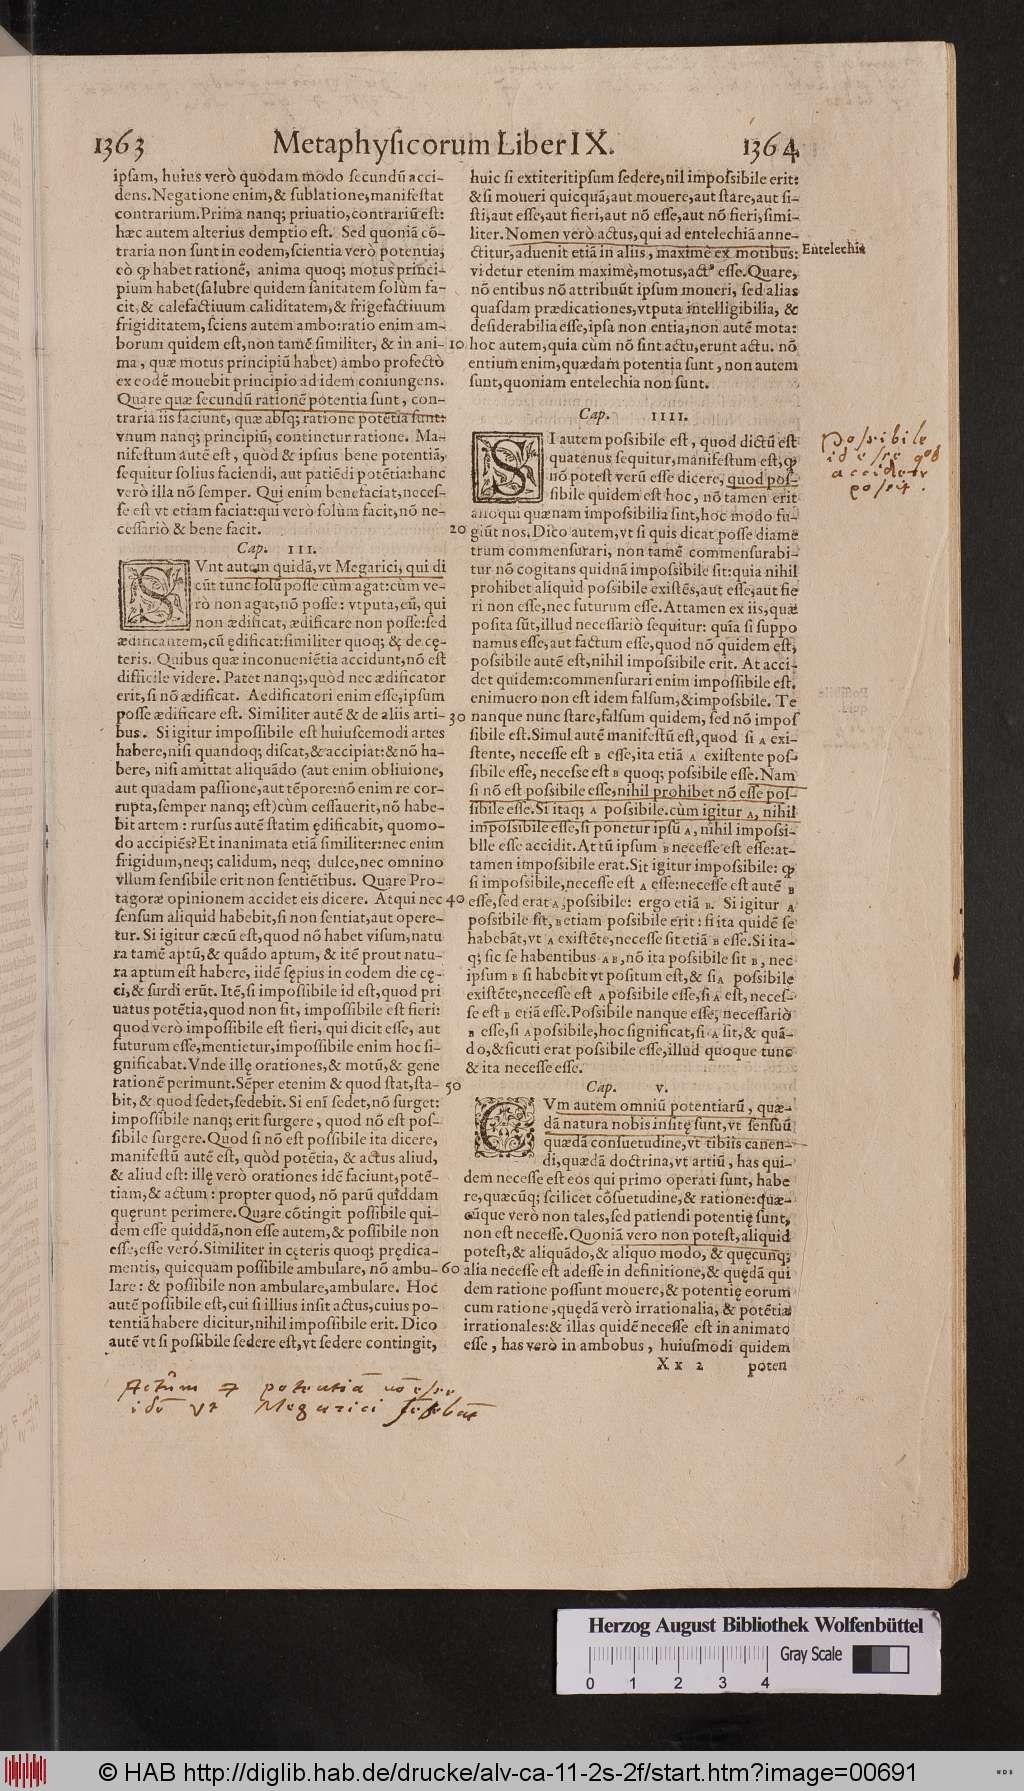 1363 Metaphysicorum Liber IX. 1364
ipsam, huius verò quodam modo secundũ acci-
dens. Negatione enim, & sublatione, manifestat
contrarium. Prima nanq; priuatio, contrariũ est:
hæc autem alterius demptio est. Sed quoniã cõ-
traria non sunt in eodem, scientia verò potentia,
eò ꝙ habet rationẽ, anima quoq; motus princi-
pium habet (salubre quidem sanitatem solùm fa-
cit, & calefactiuum caliditatem, & frigefactiuum
frigiditatem, sciens autem ambo: ratio enim am-
borum quidem est, non tamẽ similiter, & in ani-
ma, quæ motus principiũ habet) ambo profectò
ex eodẽ mouebit principio ad idem coniungens.
Quare quæ secundũ rationẽ potentia sunt, con-
traria iis faciunt, quæ absq; ratione potẽtia sunt:
vnum nanq; principiũ, continetur ratione. Ma-
nifestum autẽ est, quòd & ipsius bene potentiã,
sequitur solius faciendi, aut patiẽdi potẽtia: hanc
verò illa nõ semper. Qui enim benefaciat, neces-
se est vt etiam faciat: qui verò solùm facit, nõ ne-
cessariò & bene facit.
Cap. III.
SVnt autem quidã, vt Megarici, qui di
cũt tunc solũ posse cùm agat: cùm ve-
rò non agat, nõ posse: vtputa, eũ, qui
non ædificat, ædificare non posse: sed
ædificantem, cũ ędificat: similiter quoq; & de cę-
teris. Quibus quæ inconueniẽtia accidunt, nõ est
difficile videre. Patet nanq;, quòd nec ædificator
erit, si nõ ædificat. Aedificatori enim esse, ipsum
posse ædificare est. Similiter autẽ & de aliis arti-
bus. Si igitur impossibile est huiuscemodi artes
habere, nisi quandoq; discat, & accipiat: & nõ ha-
bere, nisi amittat aliquãdo (aut enim obliuione,
aut quadam passione, aut tẽpore: nõ enim re cor-
rupta, semper nanq; est) cùm cessauerit, nõ habe-
bit artem: rursus autẽ statim ędificabit, quomo-
do accipiẽs? Et inanimata etiã similiter: nec enim
frigidum, neq; calidum, neq; dulce, nec omnino
vllum sensibile erit non sentiẽtibus. Quare Pro-
tagoræ opinionem accidet eis dicere. Atqui nec
sensum aliquid habebit, si non sentiat, aut opere-
tur. Si igitur cæcũ est, quod nõ habet visum, natu
ra tamẽ aptũ, & quãdo aptum, & itẽ prout natu-
ra aptum est habere, iidẽ sępius in eodem die cę-
ci, & surdi erũt. Itẽ, si impossibile id est, quod pri
uatus potẽtia, quod non sit, impossibile est fieri:
quod verò impossibile est fieri, qui dicit esse, aut
futurum esse, mentietur, impossibile enim hoc si-
gnificabat. Vnde illę orationes, & motũ, & gene
rationẽ perimunt. Sẽper etenim & quod stat, sta-
bit, & quod sedet, sedebit. Si eni sedet, nõ surget:
impossibile nanq; erit surgere, quod nõ est pos-
sibile surgere. Quod si nõ est possibile ita dicere,
manifestũ autẽ est, quòd potẽtia, & actus aliud,
& aliud est: illę verò orationes idẽ faciunt, potẽ-
tiam, & actum: propter quod, nõ parũ quiddam
quęrunt perimere. Quare cõtingit possibile qui-
dem esse quiddã, non esse autem, & possibile non
esse, esse verò. Similiter in cęteris quoq; prędica-
mentis, quicquam possibile ambulare, nõ ambu-
lare: & possibile non ambulare, ambulare. Hoc
autẽ possibile est, cui si illius insit actus, cuius po-
tentiã habere dicitur, nihil impossibile erit. Dico
autẽ vt si possibile sedere est, vt sedere contingit,
10
20
30
40
50
60
huic si extiterit ipsum sedere, nil impossibile erit:
& si moueri quicquã, aut mouere, aut stare, aut si-
sti, aut esse, aut fieri, aut nõ esse, aut nõ fieri, simi-
liter. Nomen verò actus, qui ad entelechiã anne-
ctitur, aduenit etiã in aliis, maximè ex motibus:
videtur etenim maximè, motus, act⁹ esse. Quare,
nõ entibus nõ attribuũt ipsum moueri, sed alias
quasdam prædicationes, vtputa intelligibilia, &
desiderabilia esse, ipsa non entia, non autẽ mota:
hoc autem, quia cùm nõ sint actu, erunt actu. nõ
entium enim, quædam potentia sunt, non autem
sunt, quoniam entelechia non sunt.
Entelechia
Cap. IIII.
SI autem possibile est, quod dictũ est
quatenus sequitur, manifestum est, ꝙ
nõ potest verũ esse dicere, quod pos-
sibile quidem est hoc, nõ tamen erit
alioqui quænam impossibilia sint, hoc modo fu-
giũt nos. Dico autem, vt si quis dicat posse diame
trum commensurari, non tamẽ commensurabi-
tur nõ cogitans quidnã impossibile sit: quia nihil
prohibet aliquid possibile existẽs, aut esse, aut fie
ri non esse, nec futurum esse. Attamen ex iis, quæ
posita sũt, illud necessariò sequitur: quia si suppo
namus esse, aut factum esse, quod nõ quidem est,
possibile autẽ est, nihil impossibile erit. At acci-
det quidem: commensurari enim impossibile est.
enimuero non est idem falsum, & impossbile. Te
nanque nunc stare, falsum quidem, sed nõ impos
sibile est. Simul autẽ manifestũ est, quod si A exi-
stente, necesse est B esse, ita etiã A existente pos-
sibile esse, necesse est B quoq; possibile esse. Nam
si nõ est possibile esse, nihil prohibet nõ esse pos-
sibile esse. Si itaq; A possibile. cùm igitur A, nihil
impossibile esse, si ponetur ipsũ A, nihil impossi-
blle esse accidit. At tũ ipsum B necesse est esse: at-
tamen impossibile erat. Sit igitur impossibile: ꝙ
si impossibile, necesse est A esse: necesse est autẽ B
esse, sed erat A, possibile: ergo etiã B. Si igitur A
possibile sit, B etiam possibile erit: si ita quidẽ se
habebãt, vt A existẽte, necesse sit etiã B esse. Si ita-
q; sic se habentibus A B, nõ ita possibile sit B, nec
ipsum B si habebit vt positum est, & si A possibile
existẽte, necesse est A possibile esse, si A est, neces-
se est B etiã esse. Possibile nanque esse, necessariò
B esse, si A possibile, hoc significat, si A sit, & quã-
do, & sicuti erat possibile esse, illud quoque tunc
& ita necesse esse.
Possibile
id esse qod
accidere
posset
Cap. V.
CVm autem omniũ potentiarũ, quæ-
dã natura nobis insitę sunt, vt sensuũ
quædã consuetudine, vt tibiis canen-
di, quædã doctrina, vt artiũ, has qui-
dem necesse est eos qui primo operati sunt, habe
re, quæcũq; scilicet cõsuetudine, & ratione: quæ-
cũque verò non tales, sed patiendi potentię sunt,
non est necesse. Quoniã vero non potest, aliquid
potest, & aliquãdo, & aliquo modo, & quęcunq;
alia necesse est adesse in definitione, & quędã qui
dem ratione possunt mouere, & potentię eorum
cum ratione, quędã verò irrationalia, & potẽtiæ
irrationales: & illas quidẽ necesse est in animato
esse, has verò in ambobus, huiusmodi quidem
Xx 2 poten
Actum & potentiã nõ esse
idẽ vt Megarici
Herzog August Bibliothek Wolfenbüttel
Gray Scale
0 1 2 3 4
© HAB http://diglib.hab.de/drucke/alv-ca-11-2s-2f/start.htm?image=00691